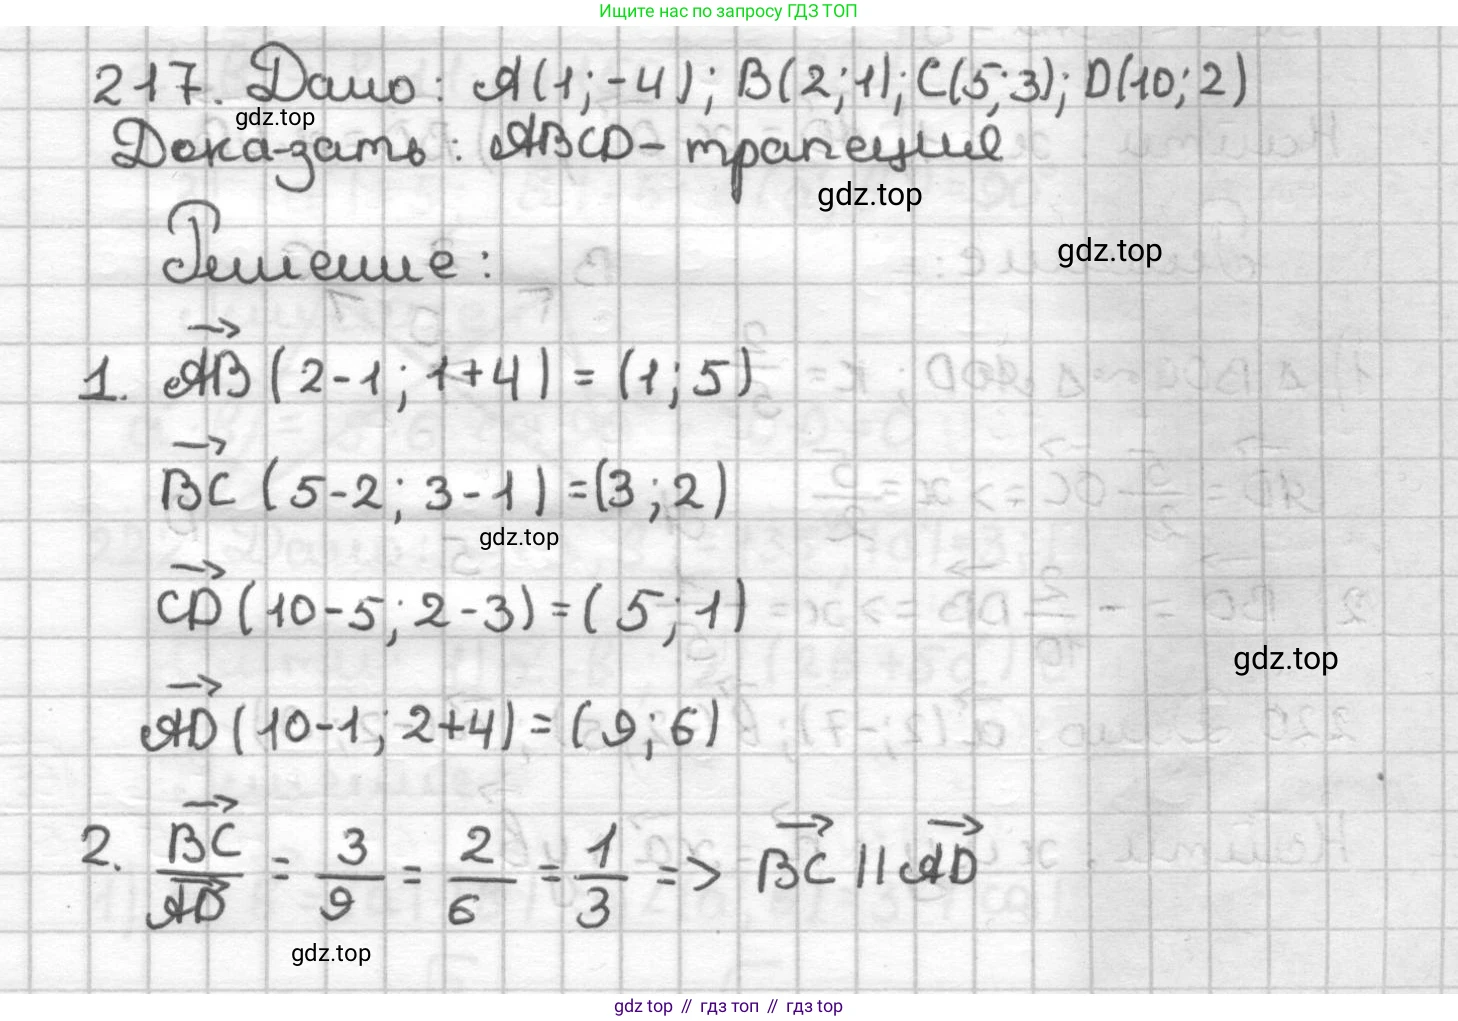 Ищите нас по запросу ГДЗ ТОП
217. Дано: A(1;-4); B(2;1); C(5;3); D(10;2)
gdz.top
Доказать: ABCD - трапеция
gdz.top
gdz.top
Решение:
1. AB (2-1; 1+4) = (1; 5)
BC (5-2; 3-1) = (3; 2)
gdz.top
CD (10-5; 2-3) = (5; 1)
gdz.top
AD (10-1; 2+4) = (9; 6)
2. BC/AD = 3/9 = 2/6 = 1/3 => BC || AD
gdz.top
gdz top // гдз топ // гдз top